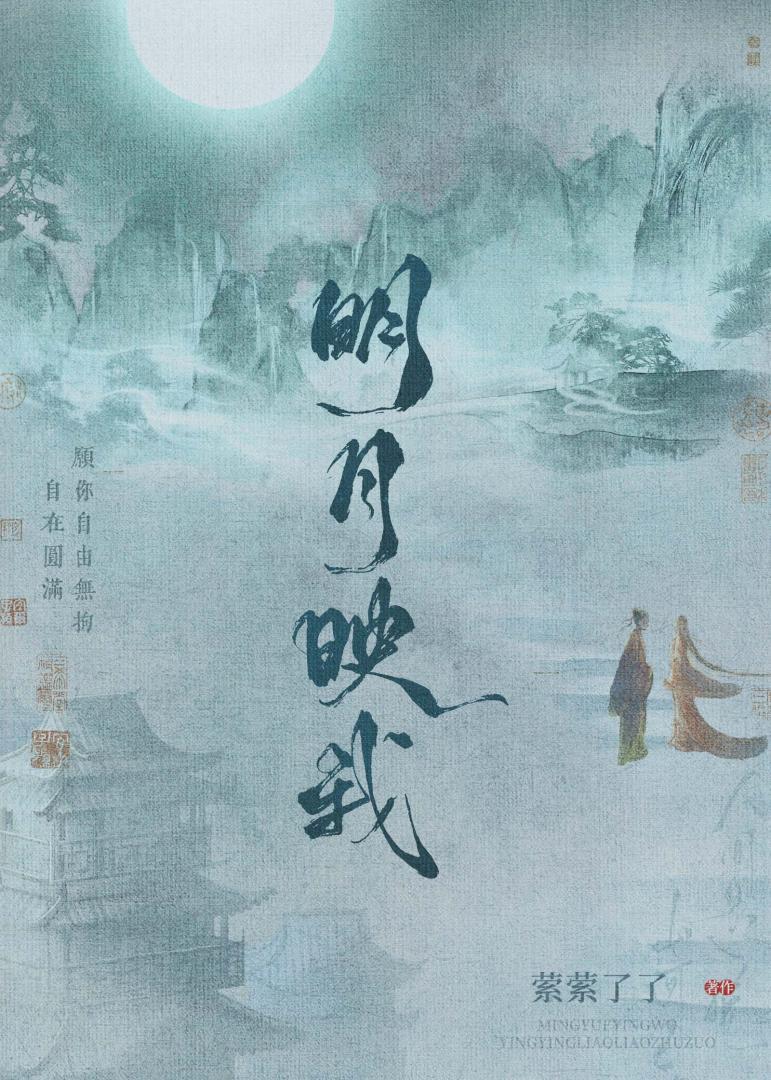 明月映我
願你自由無拘
自在圓滿
萦萦了了
著作
MINGYUEYINGWO
YINGYINGLIAOLIAOZHUZUO